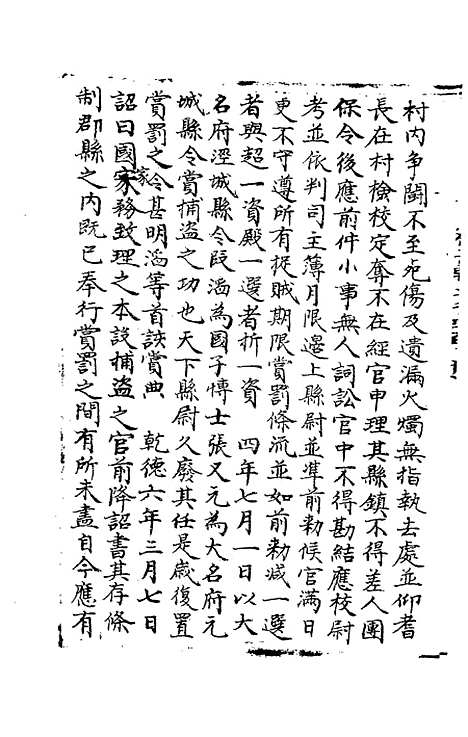 村内争鬪不至死傷及遺漏火燭無指執去處並仰耆
長在村檢校定奪不在經官申理其縣鎮不得差人團
保今後應前件小事無人詞訟官中不得勘結應校尉
考並依判司主簿月限邊上縣尉並準前勅候官滿日
更不守遵所有捉賊期限賞罰條流並如前勅減一選
者與超一資殿一選者折一資　四年七月一日以大
名府涇城縣令段滔為國子博士張又元為大名府元
城縣令賞捕盜之功也天下縣尉久廢其任是歲復置
賞罰之令甚明滔等首誅賞典　乾德六年三月七日
詔曰國家務致理之本設捕盜之官前降詔書其存條
制郡縣之内既已奉行賞罰之間有所未盡自今應有